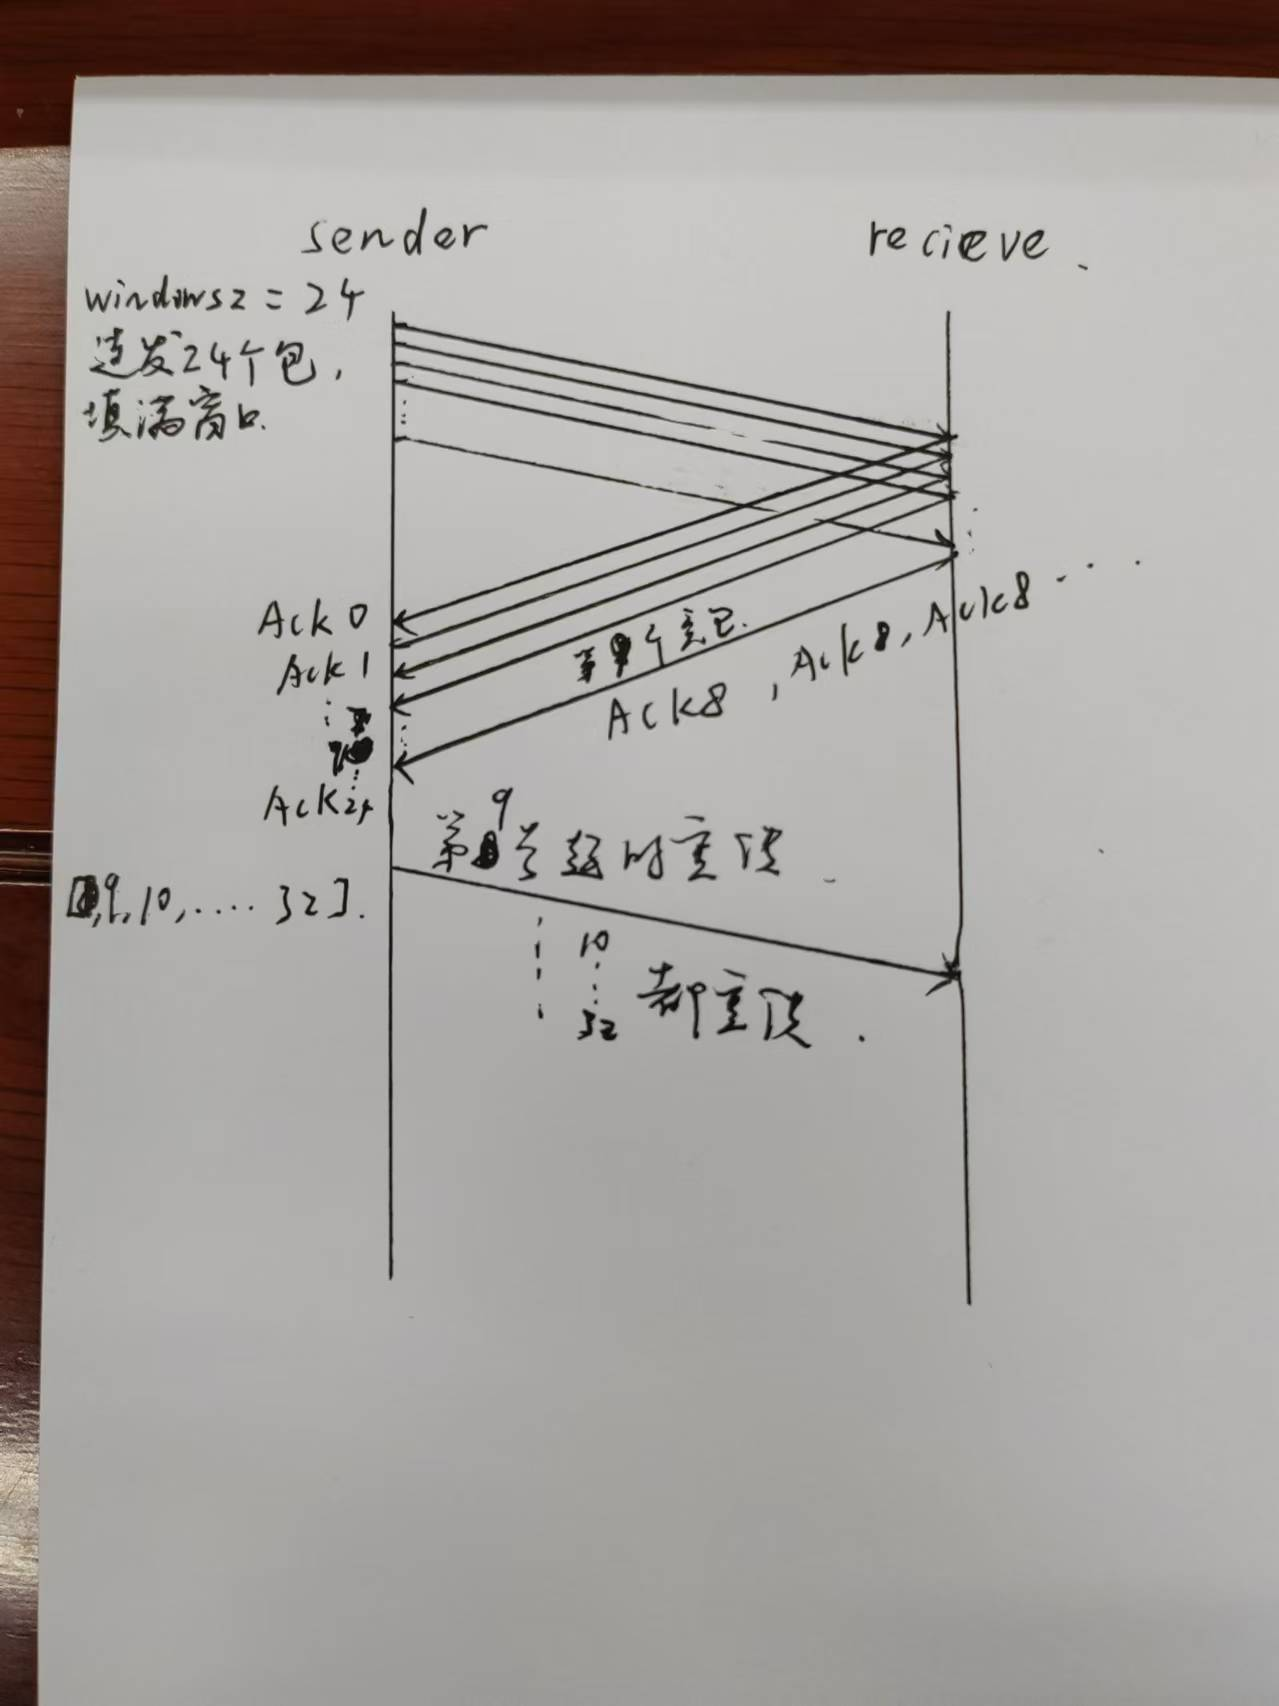 sender
recieve.
windowsz = 24
连发24个包,
填满窗口.
Ack 0
Ack 1
Ack24
第9个丢包.
Ack8, Ack8, Ack8 ····
第9号超时重传
[9,10,.... 32].
10
32 都重传.